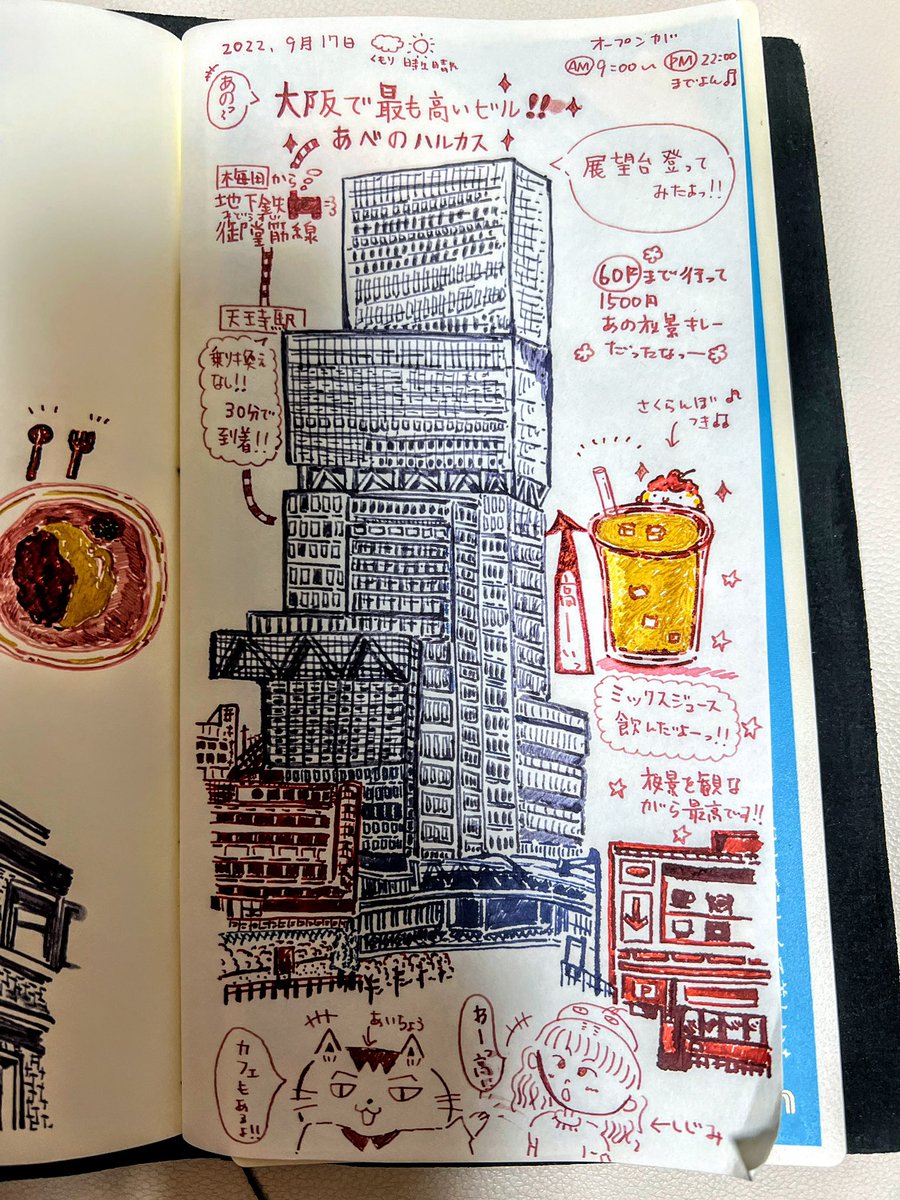 2022, 9月17日
くもり 時々晴れ
オープンが
AM 9:00〜 PM 22:00
までよん♬
あのっ
大阪で最も高いビル!!
あべのハルカス
梅田から
地下鉄
御堂筋線
展望台 登って
みたよっ!!
60Fまで行って
1500円
あの夜景キレー
だったなっー
天王寺駅
乗り換え
なし!!
30分で
到着!!
さくらんぼ♪
つき♫
高ーいっ
ミックスジュース
飲んだよーっ!!
夜景を観な
がら最高です!!
P
カフェも
あるよ!!
あいちょう
わーっ高い
←しじみ